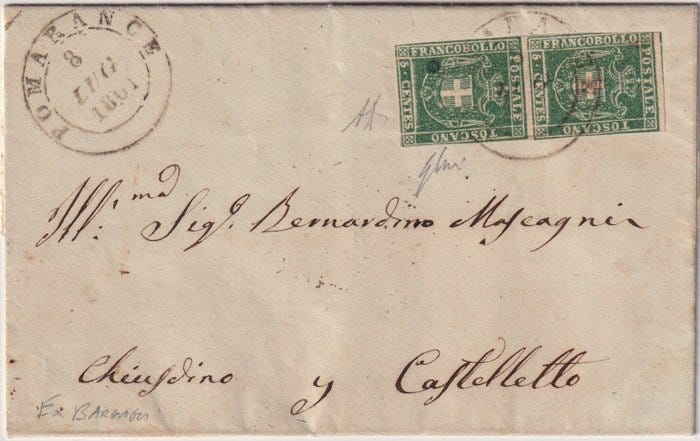 POMARANCE
8
LUG
1861
FRANCOBOLLO
POSTALE
TOSCANO
5 CENTES.
FRANCOBOLLO
POSTALE
TOSCANO
5 CENTES.
Ill: mo Sigr. Bernardino Mascagni
Chiusdino y Castelletto
Ex BARGAGLI